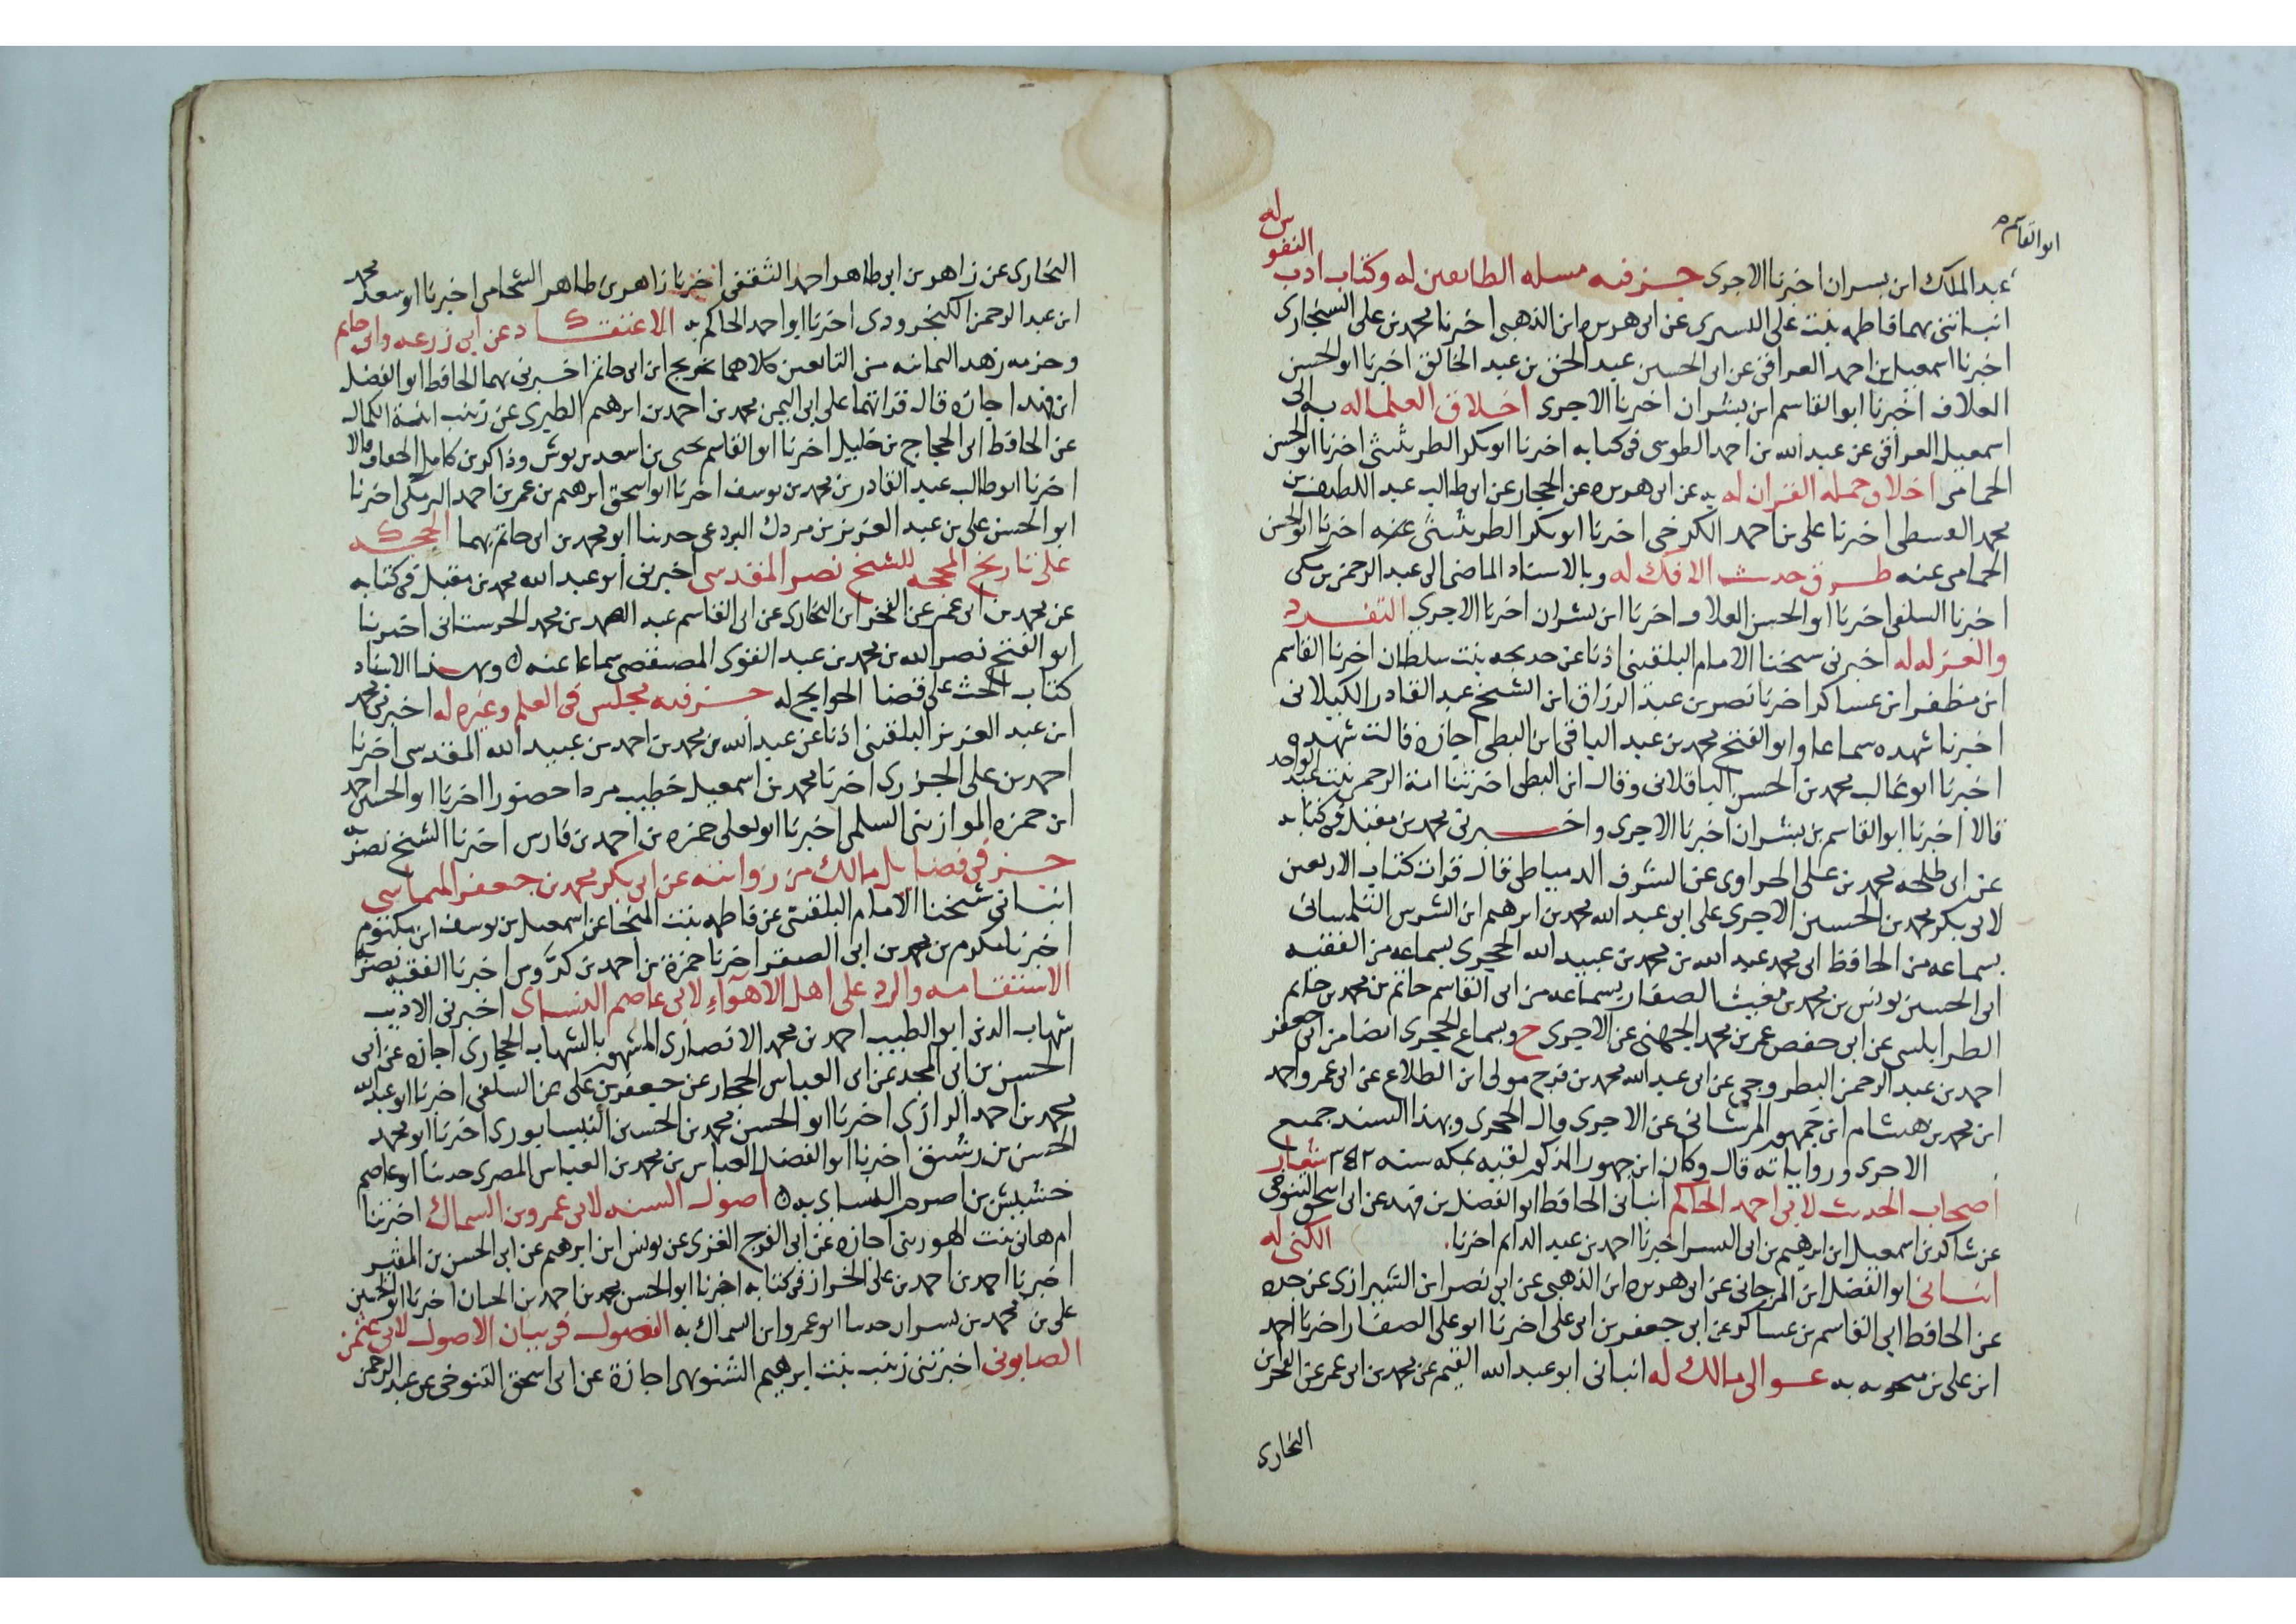 ابو القاسم
عبد الملك ابن بسران اخبرنا الاجرى جزفيه مسله الطايعين له وكتاب ادب النفوس له
انباتنى بهما فاطمه بنت على اليسرى عن ابى هريره ابن الذهبى اخبرنا محمد بن على السنجارى
اخبرنا اسمعيل بن احمد العراقى عن ابى الحسين عبد الحق بن عبد الخالق اخبرنا ابو الحسن
العلاف اخبرنا ابو القاسم ابن بشران اخبرنا الاجرى اخلاق العلما له به الى
اسمعيل العراقى عن عبد الله بن احمد الطوسى فى كتابه اخبرنا ابوبكر الطريثيثى اخبرنا ابو الحسن
الحمامى اخلاق حمله القران له به عن ابى هريره عن الحجار عن ابى طالب عبد اللطيف بن
محمد القبيطى اخبرنا على بن احمد الكرخى اخبرنا ابوبكر الطريثيثى عنه اخبرنا ابو الحسن
الحمامى عنه طرق حديث الافك له وبالاسناد الماضى الى عبد الرحمن بن مكى
اخبرنا السلفى اخبرنا ابو الحسن العلاف اخبرنا ابن بشران اخبرنا الاجرى التفرد
والعزله له اخبرنى شيخنا الامام البلقينى اذنا عن خديجه بنت سلطان اخبرنا القاسم
ابن مظفر ابن عساكر اخبرنا نصر بن عبد الرزاق ابن الشيخ عبد القادر الكيلانى
اخبرنا شهده سماعا وابو الفتح محمد بن عبد الباقى ابن البطى اجازه قالت شهده
اخبرنا ابو غالب محمد بن الحسن الباقلانى وقال ابن البطى اخبرتنا امة الرحمن بنت عبد الواحد
قالا اخبرنا ابو القاسم بن بشران اخبرنا الاجرى واخبرنى محمد بن مقبل فى كتابه
عن ابى طلحه محمد بن على الحراوى عن الشرف الدمياطى قال قرات كتاب الاربعين
لابى بكر محمد بن الحسين الاجرى على ابى عبد الله محمد بن ابرهيم ابن الشرس التلمسانى
بسماعه من الحافظ ابى محمد عبد الله بن محمد بن عبيد الله الحجرى بسماعه من الفقيه
ابى الحسين يونس بن محمد بن مغيث الصفار بسماعه من ابى القاسم حاتم بن محمد بن حاتم
الطرابلسى عن ابى حفص عمر بن محمد الجهنى عن الاجرى ح وبسماع الحجرى ايضا من ابى جعفر
احمد بن عبد الرحمن البطروجى عن ابى عبد الله محمد بن فرج مولى ابن الطلاع عن ابى عمر واحمد
ابن محمد بن هشام ابن جمهور المرشانى عن الاجرى وال الحجرى وبهذا السند جميع
الاجرى ورواياته قال وكان ابن جمهور المذكور لقيه بمكه سنه ٣٤٢ شعار
اصحاب الحديث لابى احمد الحاكم انبانى الحافظ ابو الفضل بن فهد عن ابى اسحق التنوخى
عن شاكر بن اسمعيل ابن ابرهيم بن ابى اليسر اخبرنا احمد بن عبد الدايم اخبرنا. الكنى له
انبانى ابو الفضل ابن المرجانى عن ابى هريره ابن الذهبى عن ابى نصر ابن الشيرازى عن جده
عن الحافظ ابى القاسم بن عساكر عن ابى جعفر بن ابى على اخبرنا ابو على الصفار اخبرنا احمد
ابن على بن منجويه به عوالى مالك له انبانى ابو عبد الله القيم عن محمد بن ابى عمر عن الفخر ابن
البخارى
البخارى عن زاهر بن ابى طاهر احمد الثقفى اخبرنا زاهر بن طاهر الشحامى اخبرنا ابو سعد محمد
ابن عبد الرحمن الكنجرودى اخبرنا ابو احمد الحاكم به الاعتقاد عن ابى زرعه وابى حاتم
وجزء فيه زهد الثمانيه من التابعين كلاهما تخريج ابن ابى حاتم اخبرنى بهما الحافظ ابو الفضل
ابن فهد اجازه قال قراتهما على ابى اليمن محمد بن احمد بن ابرهيم الطبرى عن زينب ابنة الكمال
عن الحافظ ابى الحجاج بن خليل اخبرنا ابو القاسم يحيى بن اسعد بن بوش وذاكر بن كامل الخفاف قالا
اخبرنا ابو طالب عبد القادر بن محمد بن يوسف اخبرنا ابو اسحق ابرهيم بن عمر بن احمد البرمكى اخبرنا
ابو الحسن على بن عبد العزيز بن مردك البردعى حدثنا ابو محمد بن ابى حاتم بهما الحجه
على تاريخ المحجه للشيخ نصر المقدسى اخبرنى ابو عبد الله محمد بن مقبل فى كتابه
عن محمد بن ابى عمر عن الفخر ابن البخارى عن ابى القاسم عبد الصمد بن محمد الحرستانى اخبرنا
ابو الفتح نصر الله بن محمد بن عبد القوى المصيصى سماعا عنه وبهذا الاسناد
كتاب الحث على قضا الحوايج له جزفيه مجلس فى العلم وغيره له اخبرنى محمد
ابن عبد العزيز البلقينى اذنا عن عبد الله بن محمد بن احمد بن عبيد الله المقدسى اخبرنا
احمد بن على الجزرى اخبرنا محمد بن اسمعيل خطيب مردا حضورا اخبرنا ابو الحسين احمد
ابن حمزه الموازينى السلمى اخبرنا ابو يعلى حمزه بن احمد بن فارس اخبرنا الشيخ نصر به
جزفى فضايل مالك من روايته عن ابى بكر محمد بن جعفر الميماسى
انبانى شيخنا الامام البلقينى عن فاطمه بنت المنجا عن اسمعيل بن يوسف ابن مكتوم
اخبرنا مكرم بن محمد بن ابى الصقر اخبرنا حمزة بن احمد بن كروس اخبرنا الفقيه نصر به
الاستقامه والرد على اهل الاهوآء لابى عاصم النساى اخبرنى الاديب
شهاب الدين ابو الطيب احمد بن محمد الانصارى المشهور بالشهاب الحجازى اجازه عن ابى
الحسن بن ابى المجد عن ابى العباس الحجار عن جعفر بن على عن السلفى اخبرنا ابو عبد الله
محمد بن احمد الرازى اخبرنا ابو الحسن محمد بن الحسين النيسابورى اخبرنا ابو محمد
الحسن بن رشيق اخبرنا ابو الفضل العباس بن محمد بن العباس المصرى حدثنا ابو عاصم
خشيش بن اصرم النساى به اصول السنه لابى عمرو بن السماك اخبرتنا
ام هانى بنت الهورينى اجازه عن ابى الفرج الغزى عن يونس ابن ابرهيم عن ابى الحسن بن المقير
اخبرنا احمد بن احمد بن على الخراز فى كتابه اخبرنا ابو الحسن محمد بن احمد بن اخبرنا ابو الحسين
على بن محمد بن بسران حدثنا ابو عمرو ابن السماك به الفصول فى بيان الاصول لابى عثمن
الصابونى اخبرتنى زينب بنت ابرهيم الشنويهى اجازة عن ابى اسحق التنوخى عن عبد الرحمن